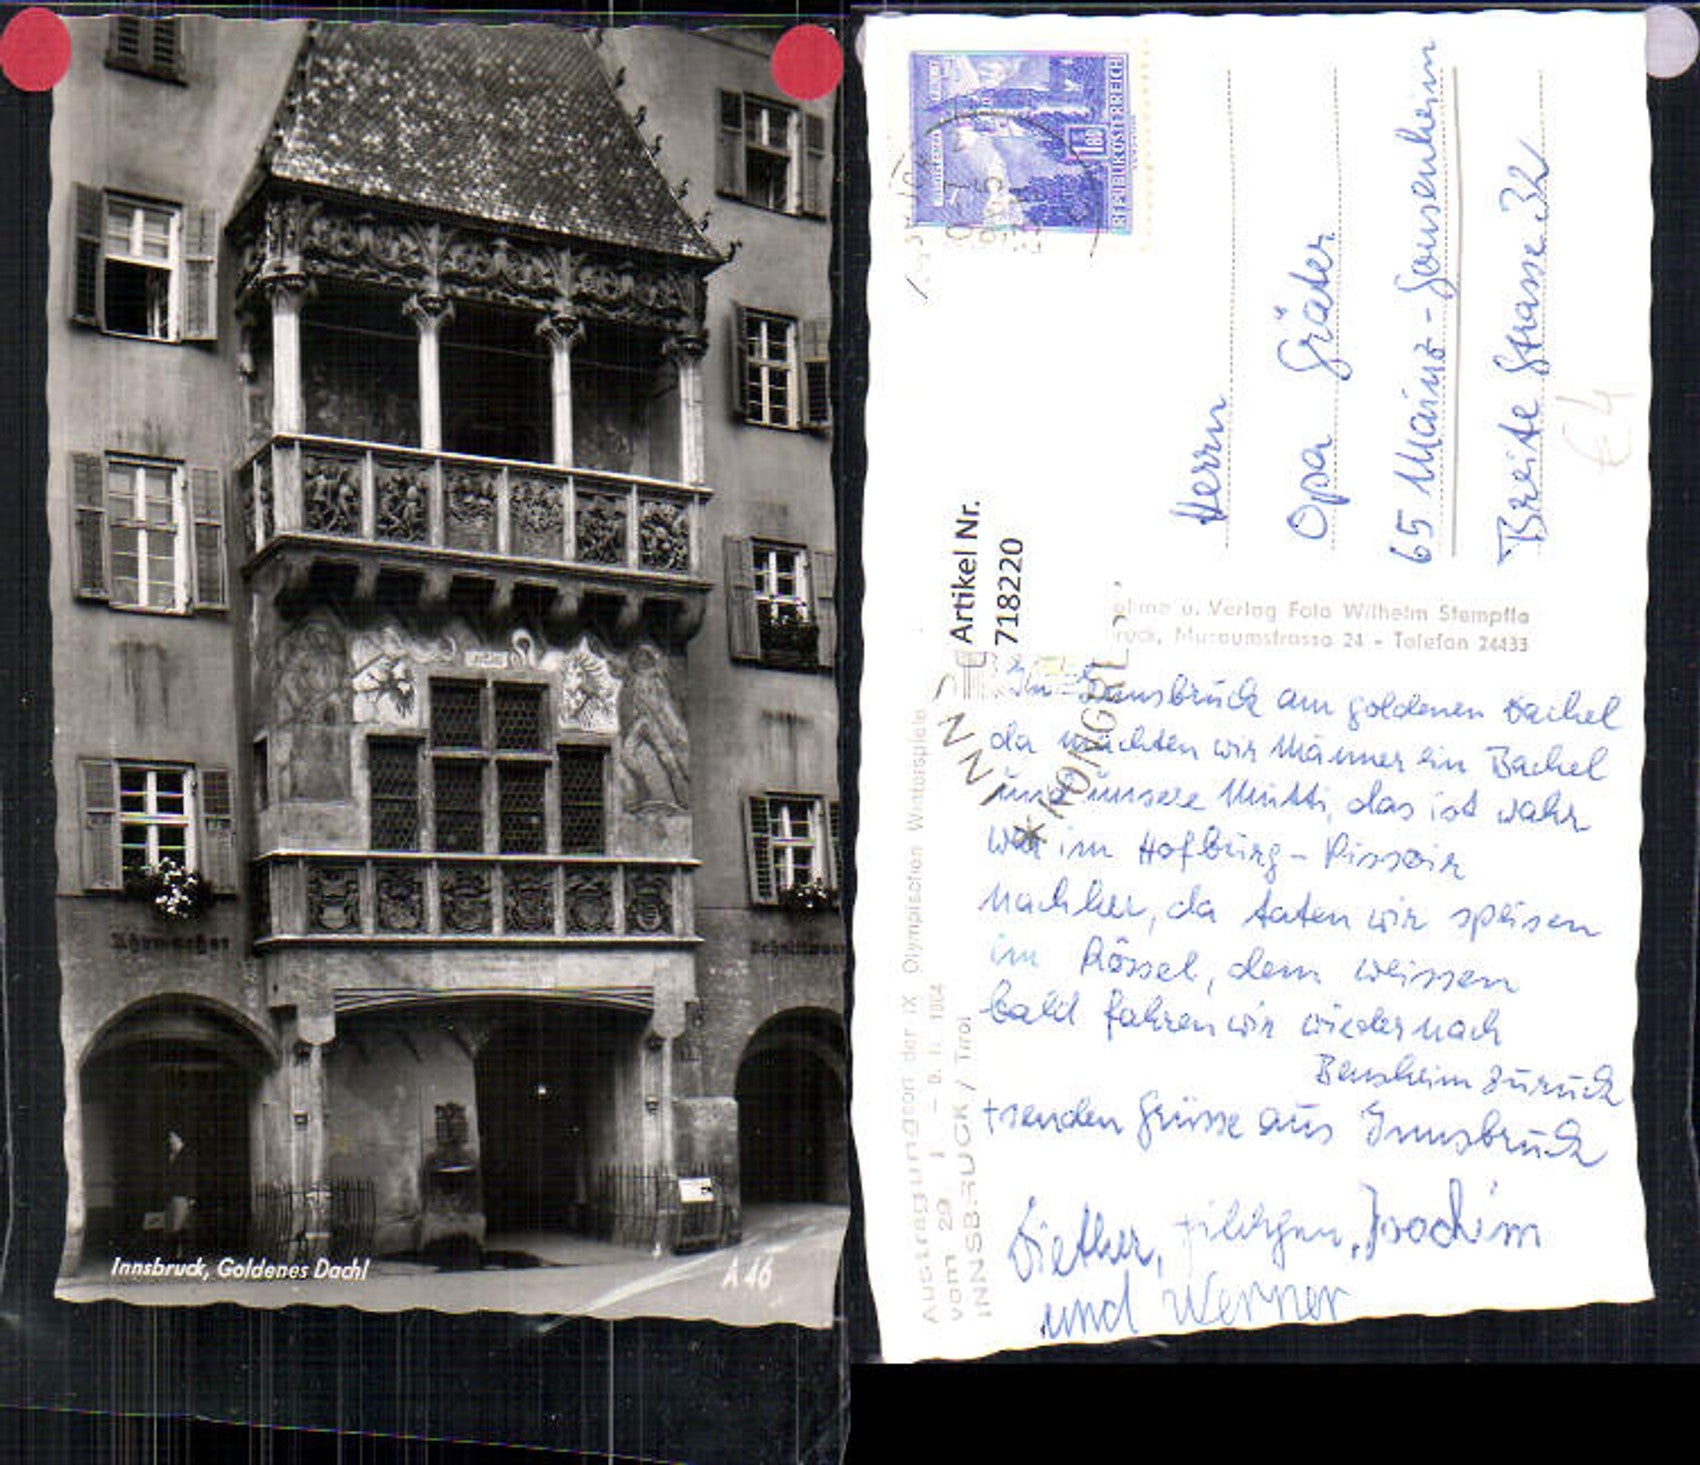 Innsbruck, Goldenes Dachl
A 46
REPUBLIK ÖSTERREICH
1.80
Artikel Nr.
718220
Herrn
Opa Gräter
65 Mainz - Gonsenheim
Breite Strasse 32
€ 4
u. Verlag Foto Wilhelm Stempfle
Museumstrasse 24 - Telefon 24433
Austragungsort der IX. Olympischen Winterspiele
vom 29. 1. –
INNSBRUCK / Tirol
In Innsbruck am goldenen Dachel
da machten wir Männer ein Bachel
und unsere Mutti, das ist wahr
war im Hofburg - Pissoir
Nachher, da taten wir speisen
im Rössel, dem weissen
bald fahren wir wieder nach
Bensheim zurück
+ senden Grüsse aus Innsbruck
Diether, Joachim
und Werner